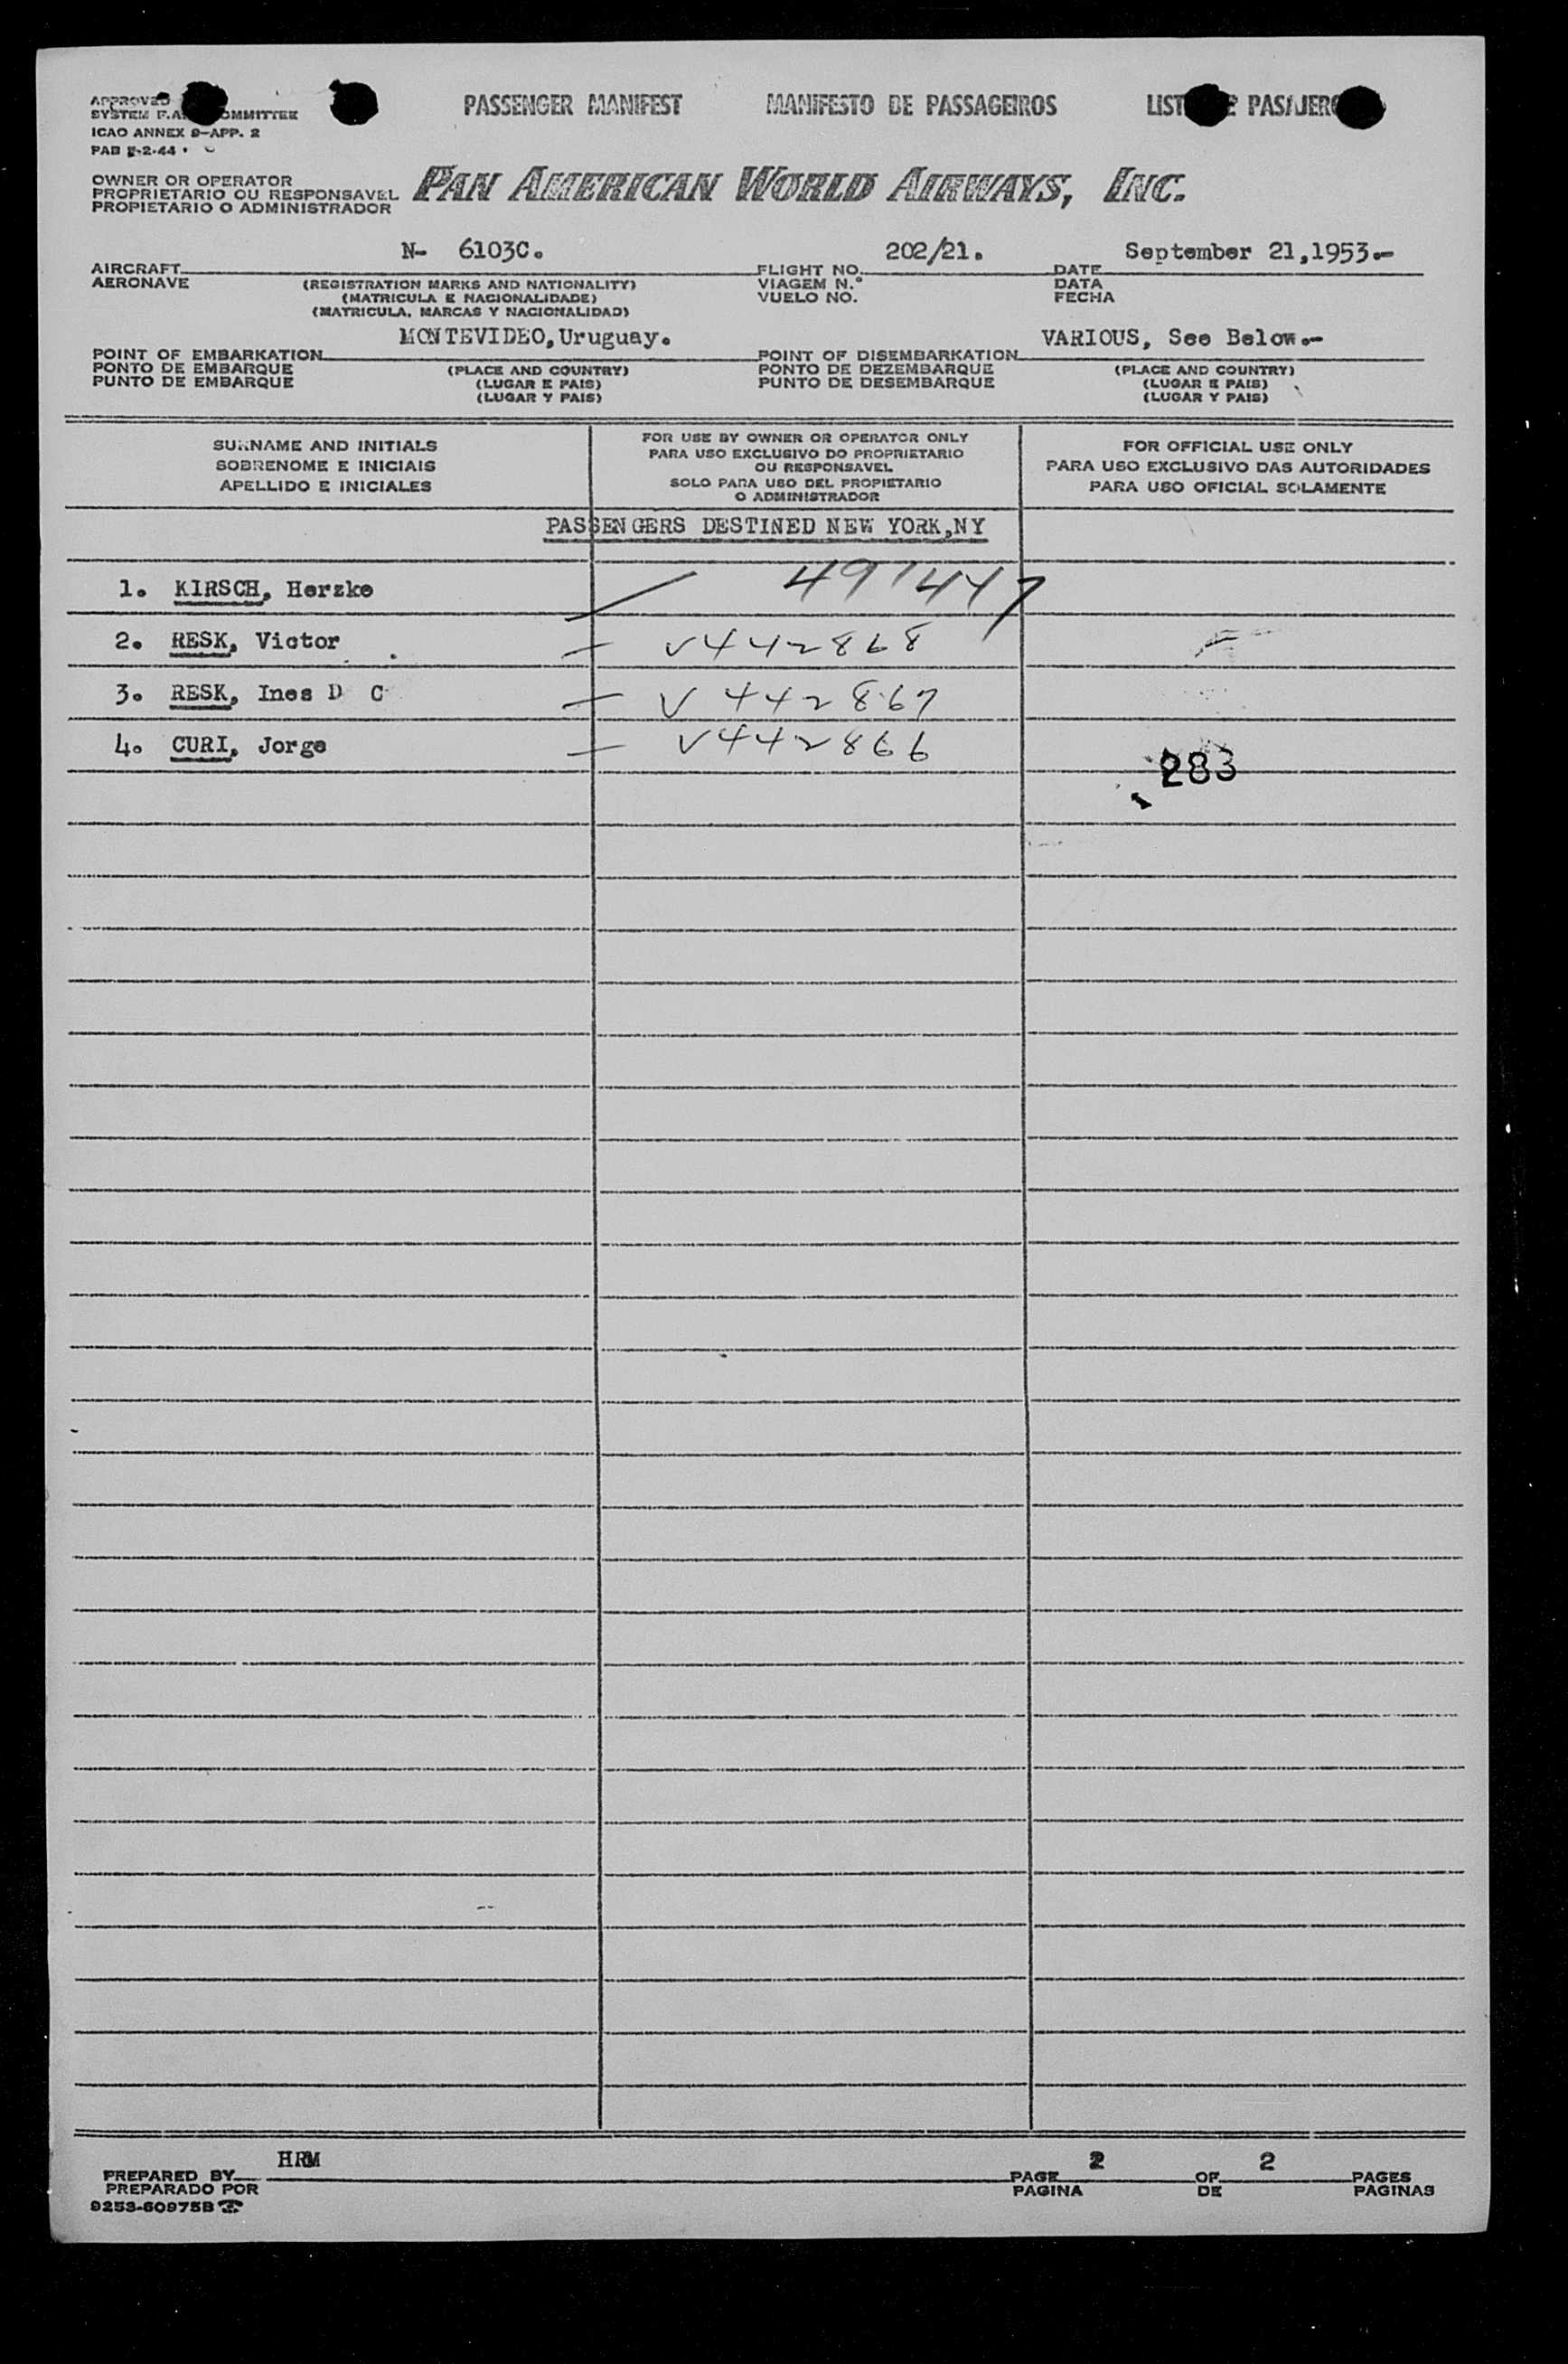 PASSENGER MANIFEST MANIFESTO DE PASSAGEIROS
APPROVED
SYSTEM
ICAO ANNEX 9-APP. 2
OWNER OR OPERATOR
PROPRIETARIO OU RESPONSAVEL
PROPIETARIO O ADMINISTRADOR
PAN AMERICAN WORLD AIRWAYS, INC.
N- 6103C. 202/21. September 21,1953.-
AIRCRAFT FLIGHT NO. DATE
AERONAVE (REGISTRATION MARKS AND NATIONALITY) VIAGEM N.º DATA
(MATRICULA E NACIONALIDADE) VUELO NO. FECHA
(MATRICULA, MARCAS Y NACIONALIDAD)
MONTEVIDEO,Uruguay. VARIOUS, See Below.-
POINT OF EMBARKATION POINT OF DISEMBARKATION
PONTO DE EMBARQUE (PLACE AND COUNTRY) PONTO DE DEZEMBARQUE (PLACE AND COUNTRY)
PUNTO DE EMBARQUE (LUGAR E PAIS) PUNTO DE DESEMBARQUE (LUGAR E PAIS)
(LUGAR Y PAIS) (LUGAR Y PAIS)
SURNAME AND INITIALS
SOBRENOME E INICIAIS
APELLIDO E INICIALES
FOR USE BY OWNER OR OPERATOR ONLY
PARA USO EXCLUSIVO DO PROPRIETARIO
OU RESPONSAVEL
SOLO PARA USO DEL PROPIETARIO
O ADMINISTRADOR
FOR OFFICIAL USE ONLY
PARA USO EXCLUSIVO DAS AUTORIDADES
PARA USO OFICIAL SOLAMENTE
PASSENGERS DESTINED NEW YORK,NY
1. KIRSCH, Herzke
2. RESK, Victor V442868
3. RESK, Ines D C V 442867
4. CURI, Jorge V442866
283
HRM 2 2
PREPARED BY PAGE OF PAGES
PREPARADO POR PAGINA DE PAGINAS
9253-60975B